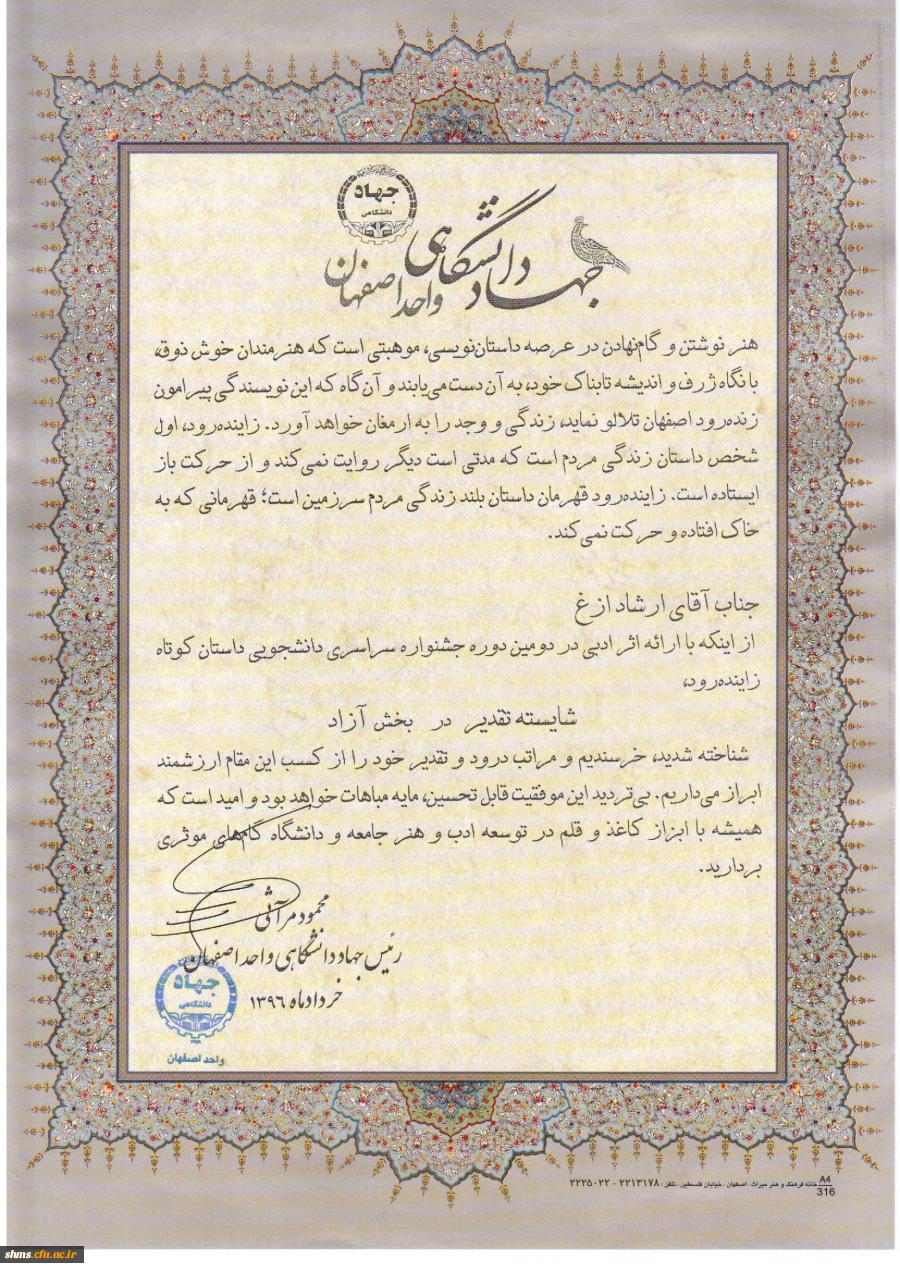 جهاد
دانشگاهی
جهاد دانشگاهی
واحد اصفهان
هنر نوشتن و گام‌نهادن در عرصه داستان‌نویسی، موهبتی است که هنرمندان خوش ذوق،
با نگاه ژرف و اندیشه تابناک خود، به آن دست می‌یابند و آن گاه که این نویسندگی پیرامون
زنده‌رود اصفهان تلالو نماید، زندگی و وجد را به ارمغان خواهد آورد. زاینده‌رود، اول
شخص داستان زندگی مردم است که مدتی است دیگر روایت نمی‌کند و از حرکت باز
ایستاده است. زاینده‌رود قهرمان داستان بلند زندگی مردم سرزمین است؛ قهرمانی که به
خاک افتاده و حرکت نمی‌کند.
جناب آقای ارشاد ازغ
از اینکه با ارائه اثر ادبی در دومین دوره جشنواره سراسری دانشجویی داستان کوتاه
زاینده‌رود،
شایسته تقدیر در بخش آزاد
شناخته شدید، خرسندیم و مراتب درود و تقدیر خود را از کسب این مقام ارزشمند
ابراز می‌داریم. بی‌تردید این موفقیت قابل تحسین، مایه مباهات خواهد بود و امید است که
همیشه با ابزار کاغذ و قلم در توسعه ادب و هنر جامعه و دانشگاه گام‌های موثری
بردارید.
محمود مرآثی
رئیس جهاد دانشگاهی واحد اصفهان
خردادماه ۱۳۹۶
جهاد
دانشگاهی
واحد اصفهان
A4
316
خانه فرهنگ و هنر میراث، اصفهان، خیابان فلسطین، تلفن: ۲۲۱۳۱۷۸ - ۲۲۲۵۰۲۲
shms.cfu.ac.ir